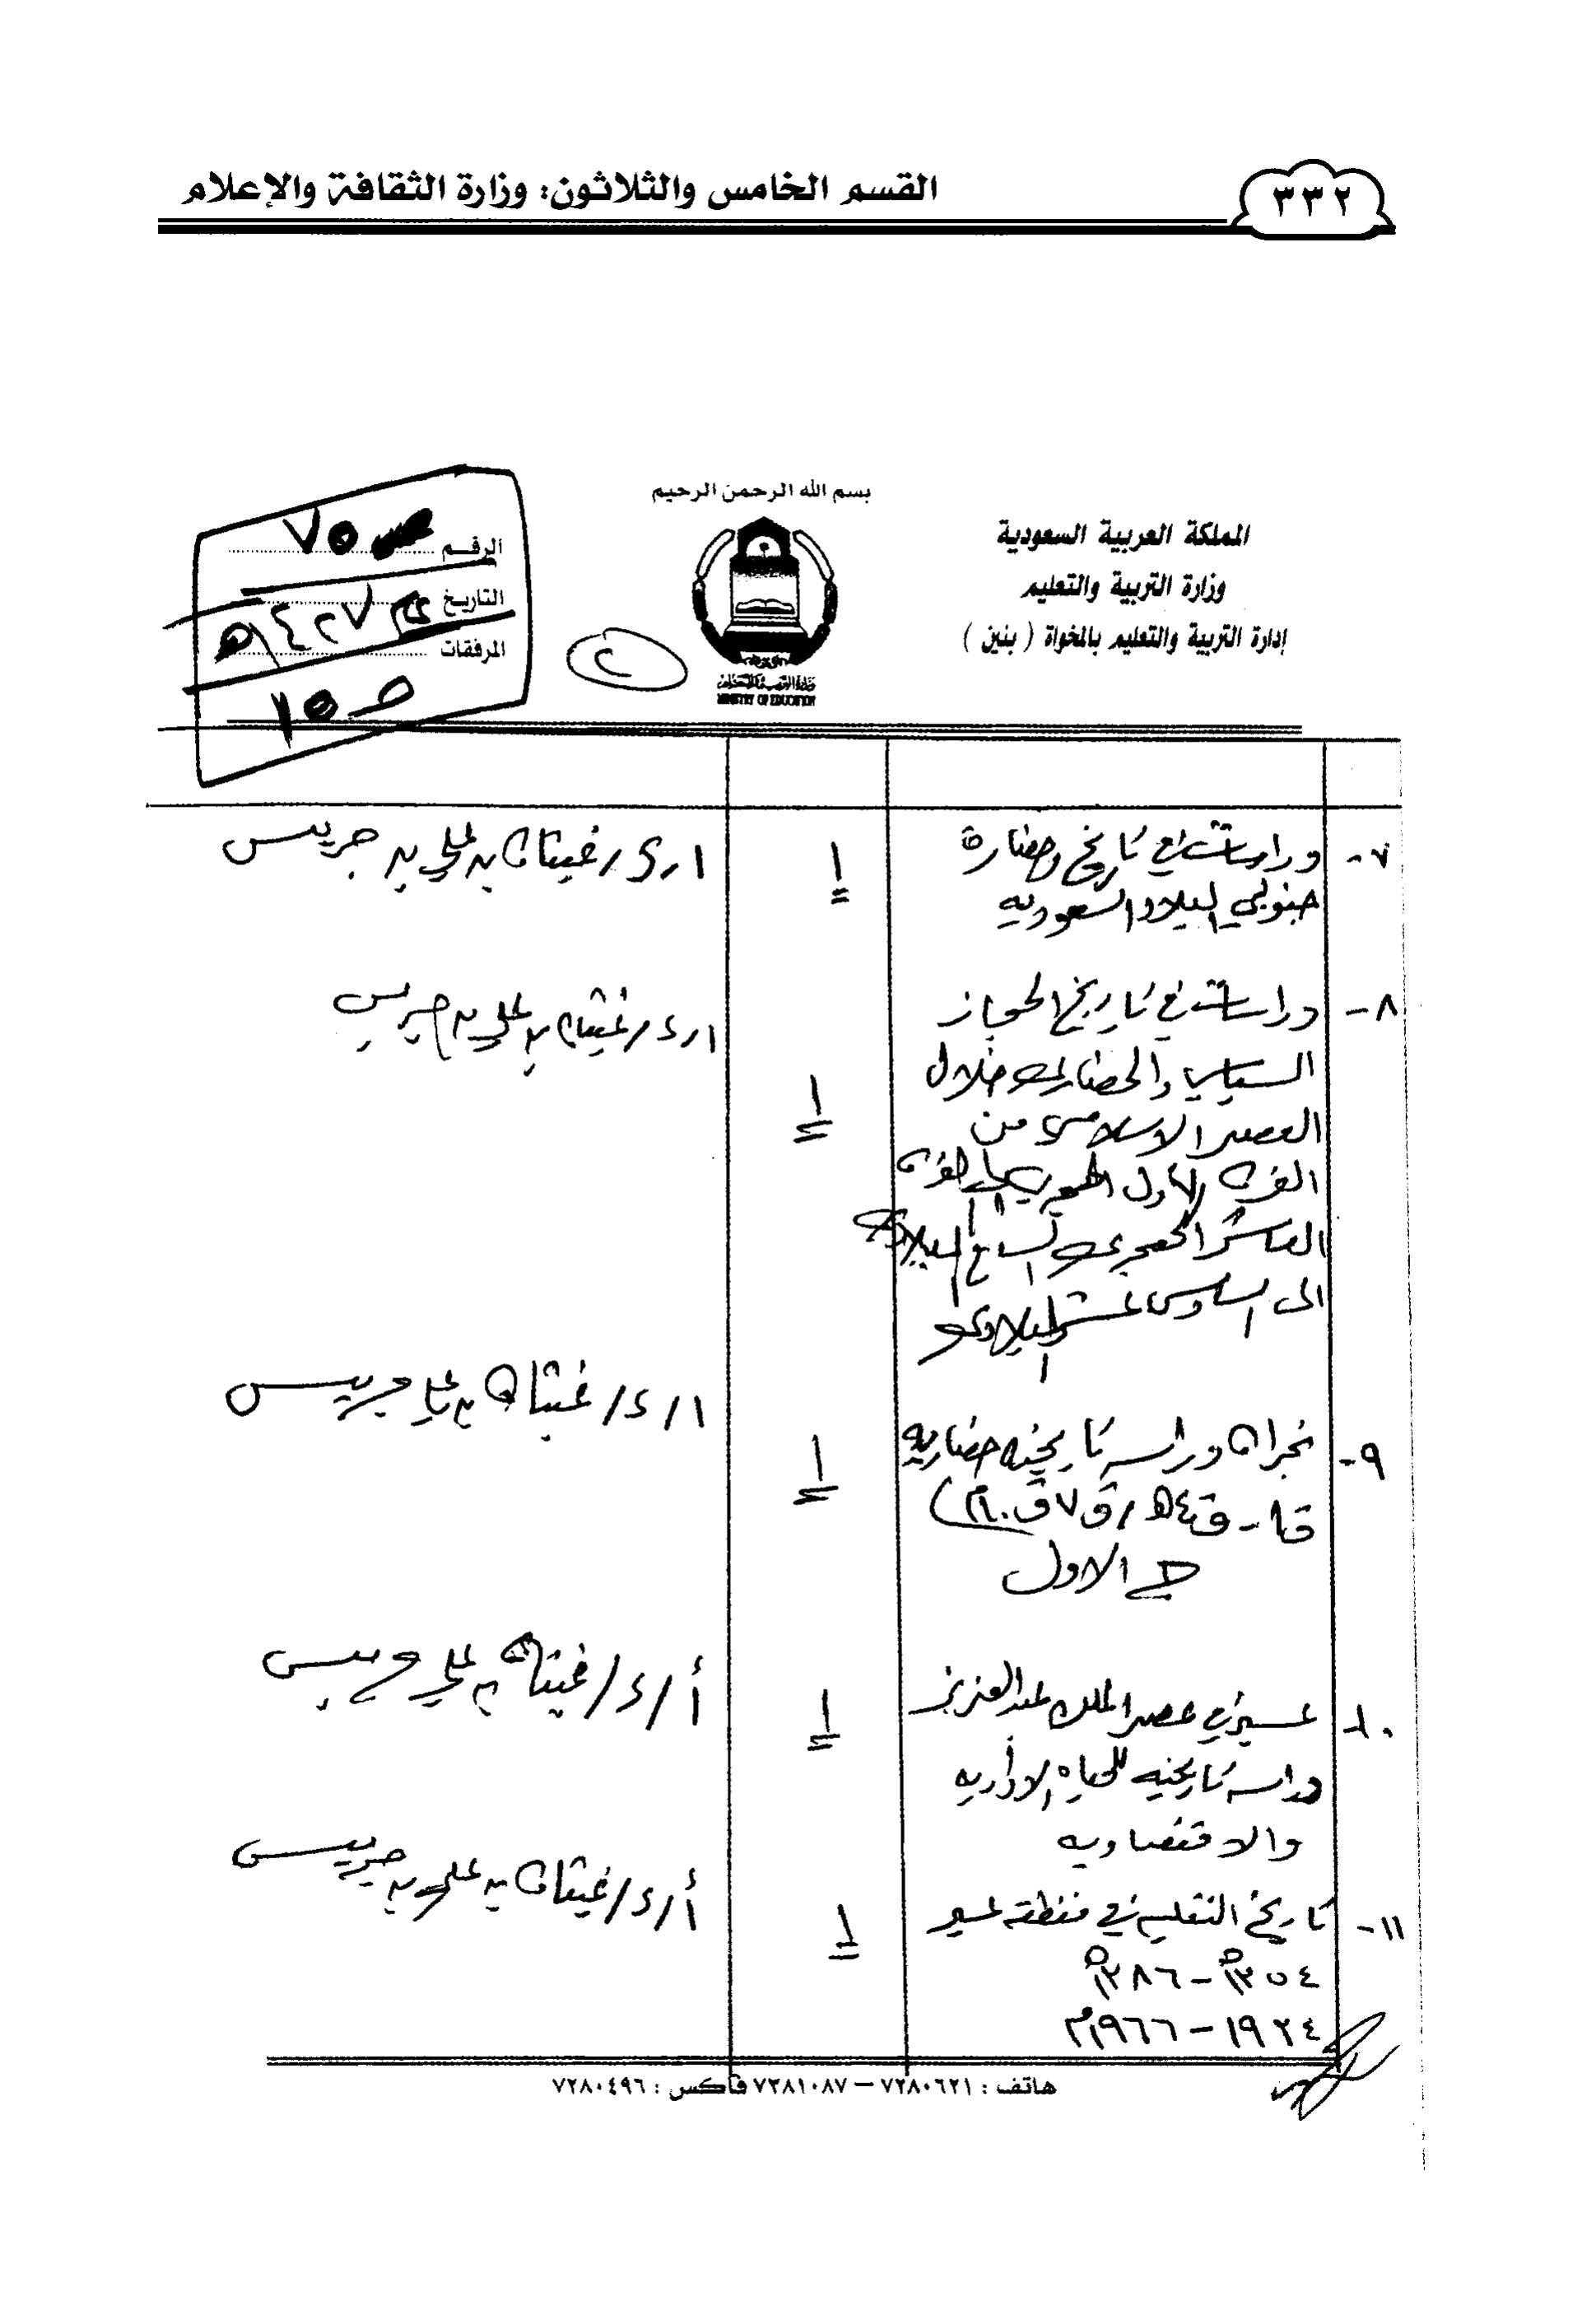 القسم الخامس والثلاثون: وزارة الثقافة والإعلام
٣٣٢
بسم الله الرحمن الرحيم
المملكة العربية السعودية
وزارة التربية والتعليم
إدارة التربية والتعليم بالمخواة ( بنين )
MINISTRY OF EDUCATION
الرقم ٧٥
التاريخ ١٤٢٧هـ
المرفقات
٢
٧- دراسات في تاريخ وحضارة
جنوبي البلاد السعودية
١
ا.د/ غيثان بن علي بن جريس
٨- دراسات في تاريخ الحجاز
السياسي والحضاري خلال
العصر الاسلامي من
القرن الأول الهجري الى القرن
العاشر الهجري السابع الميلادي
الى السادس عشر الميلادي
١
ا.د/ غيثان بن علي بن جريس
٩- نجران دراسه تاريخيه حضاريه
ق١ - ق٤هـ / ق٧ ق١٠م)
ج الاول
١
ا/ د/ غيثان بن علي جريس
١٠- عسير في عصر الملك عبدالعزيز
دراسه تاريخيه للحياه الادأريه
والاقتصاديه
١
أ/ د/ غيثان بن علي جريس
١١- تاريخ التعليم في منطقة عسير
١٣٥٤هـ - ١٣٨٦هـ
١٩٣٤ - ١٩٦٦م
١
أ/ د/ غيثان بن علي بن جريس
هاتف : ٧٢٨٠٦٢١ – ٧٢٨١٠٨٧ فاكس : ٧٢٨٠٤٩٦